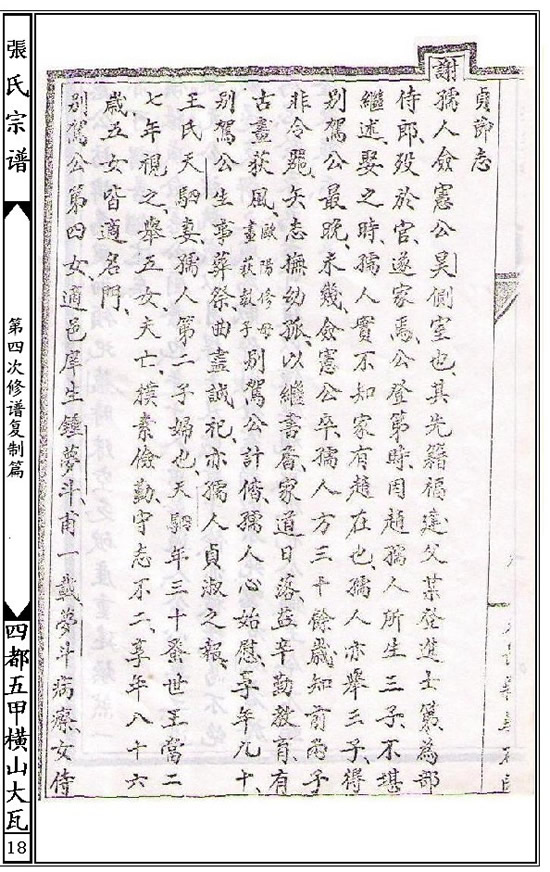 張氏宗谱
第四次修谱复制篇
四都五甲横山大瓦
18
貞節志
謝
孺人僉憲公昊側室也其先籍福建父某登進士第為部
侍郎歿於官遂家焉公登第時因趙孺人所生三子不堪
繼述娶之時孺人實不知家有趙在也孺人亦舉三子得
別駕公最晚未幾僉憲公卒孺人方三十餘歲知前兩子
非令器矢志撫幼孤以繼書香家道日落益辛勤教育有
古畫荻風歐陽修母畫荻教子別駕公計偕孺人心始慰享年九十
別駕公生事葬祭曲盡誠祀亦孺人貞淑之報
王氏天駟妻孺人第二子婦也天駟年三十登世王當二
七年視之舉五女夫亡撲素儉勤守志不二享年八十六
歲五女皆適名門
別駕公第四女適邑庠生鍾夢斗甫一載夢斗病瘵女侍